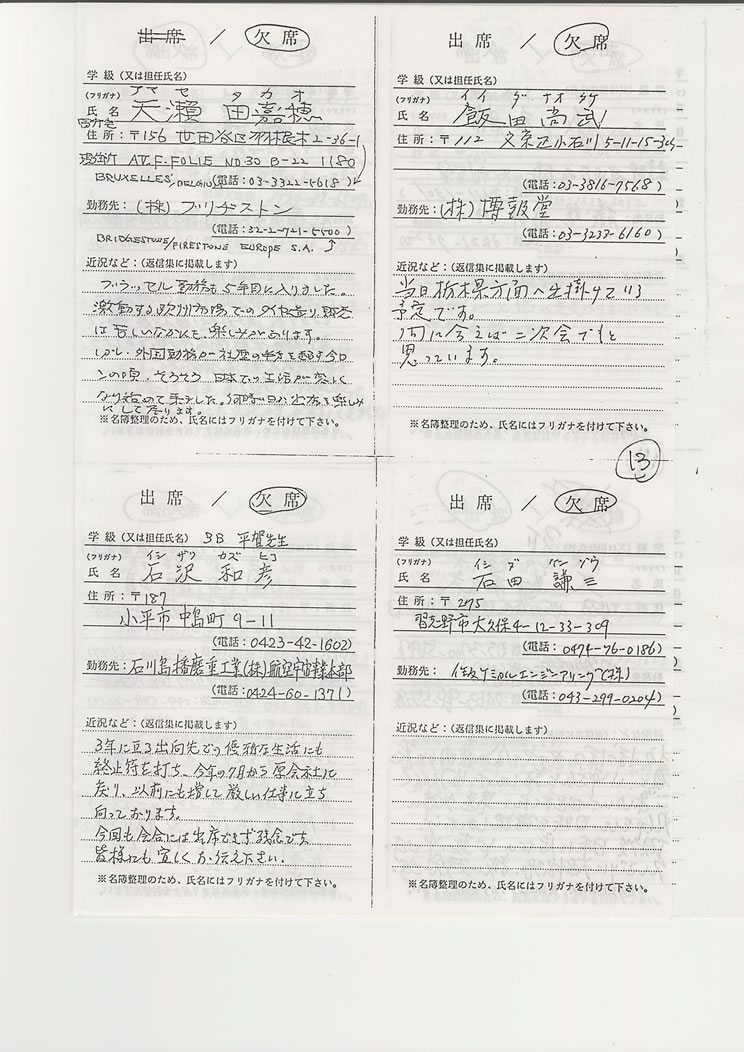 出席 / 欠席
学級（又は担任氏名）
（フリガナ） アマセ タカオ
氏名 天瀬 田嘉穂
住所：〒156 世田谷区羽根木2-36-1
現住所 AV. F. FOLIE NO.30 B-22 1180
BRUXELLES, BELGIUM （電話：03-3322-5618）
勤務先：（株）ブリヂストン
（電話：32-2-721-5500）
BRIDGESTONE/FIRESTONE EUROPE S.A.
近況など：（返信集に掲載します）
ブラッセル勤務も5年目に入りました。
激動する欧州市場でのタイヤ造り、販売
は苦しいなかにも、楽しみがあります。
しかし、外国勤務が社歴の半分を超す今日
この頃、そろそろ日本での生活が恋しく
なり始めて来ました。何時の日か出席を楽しみ
にして居ります。
※名簿整理のため、氏名にはフリガナを付けて下さい。
出席 / 欠席
学級（又は担任氏名）
（フリガナ） イイダ ナオタケ
氏名 飯田 尚武
住所：〒112 文京区小石川5-11-15-304
（電話：03-3816-7568）
勤務先：（株）博報堂
（電話：03-3233-6160）
近況など：（返信集に掲載します）
当日栃木県方面へ出掛けている
予定です。
間に合えば二次会でもと
思っています。
※名簿整理のため、氏名にはフリガナを付けて下さい。
13
出席 / 欠席
学級（又は担任氏名） 3B 平賀先生
（フリガナ） イシザワ カズヒコ
氏名 石沢 和彦
住所：〒187
小平市中島町9-11
（電話：0423-42-1602）
勤務先：石川島播磨重工業（株）航空宇宙事業本部
（電話：0424-60-1371）
近況など：（返信集に掲載します）
3年に亘る出向先での優雅な生活にも
終止符を打ち、今年の7月から原会社に
戻り、以前にも増して厳しい仕事に立ち
向っております。
今回も会合には出席できず残念です。
皆様にも宜しくお伝え下さい。
※名簿整理のため、氏名にはフリガナを付けて下さい。
出席 / 欠席
学級（又は担任氏名）
（フリガナ） イシダ ケンゾウ
氏名 石田 謙三
住所：〒275
習志野市大久保4-12-33-309
（電話：0474-76-0186）
勤務先：ケミカルエンジニアリング（株）
（電話：043-299-0204）
近況など：（返信集に掲載します）
※名簿整理のため、氏名にはフリガナを付けて下さい。